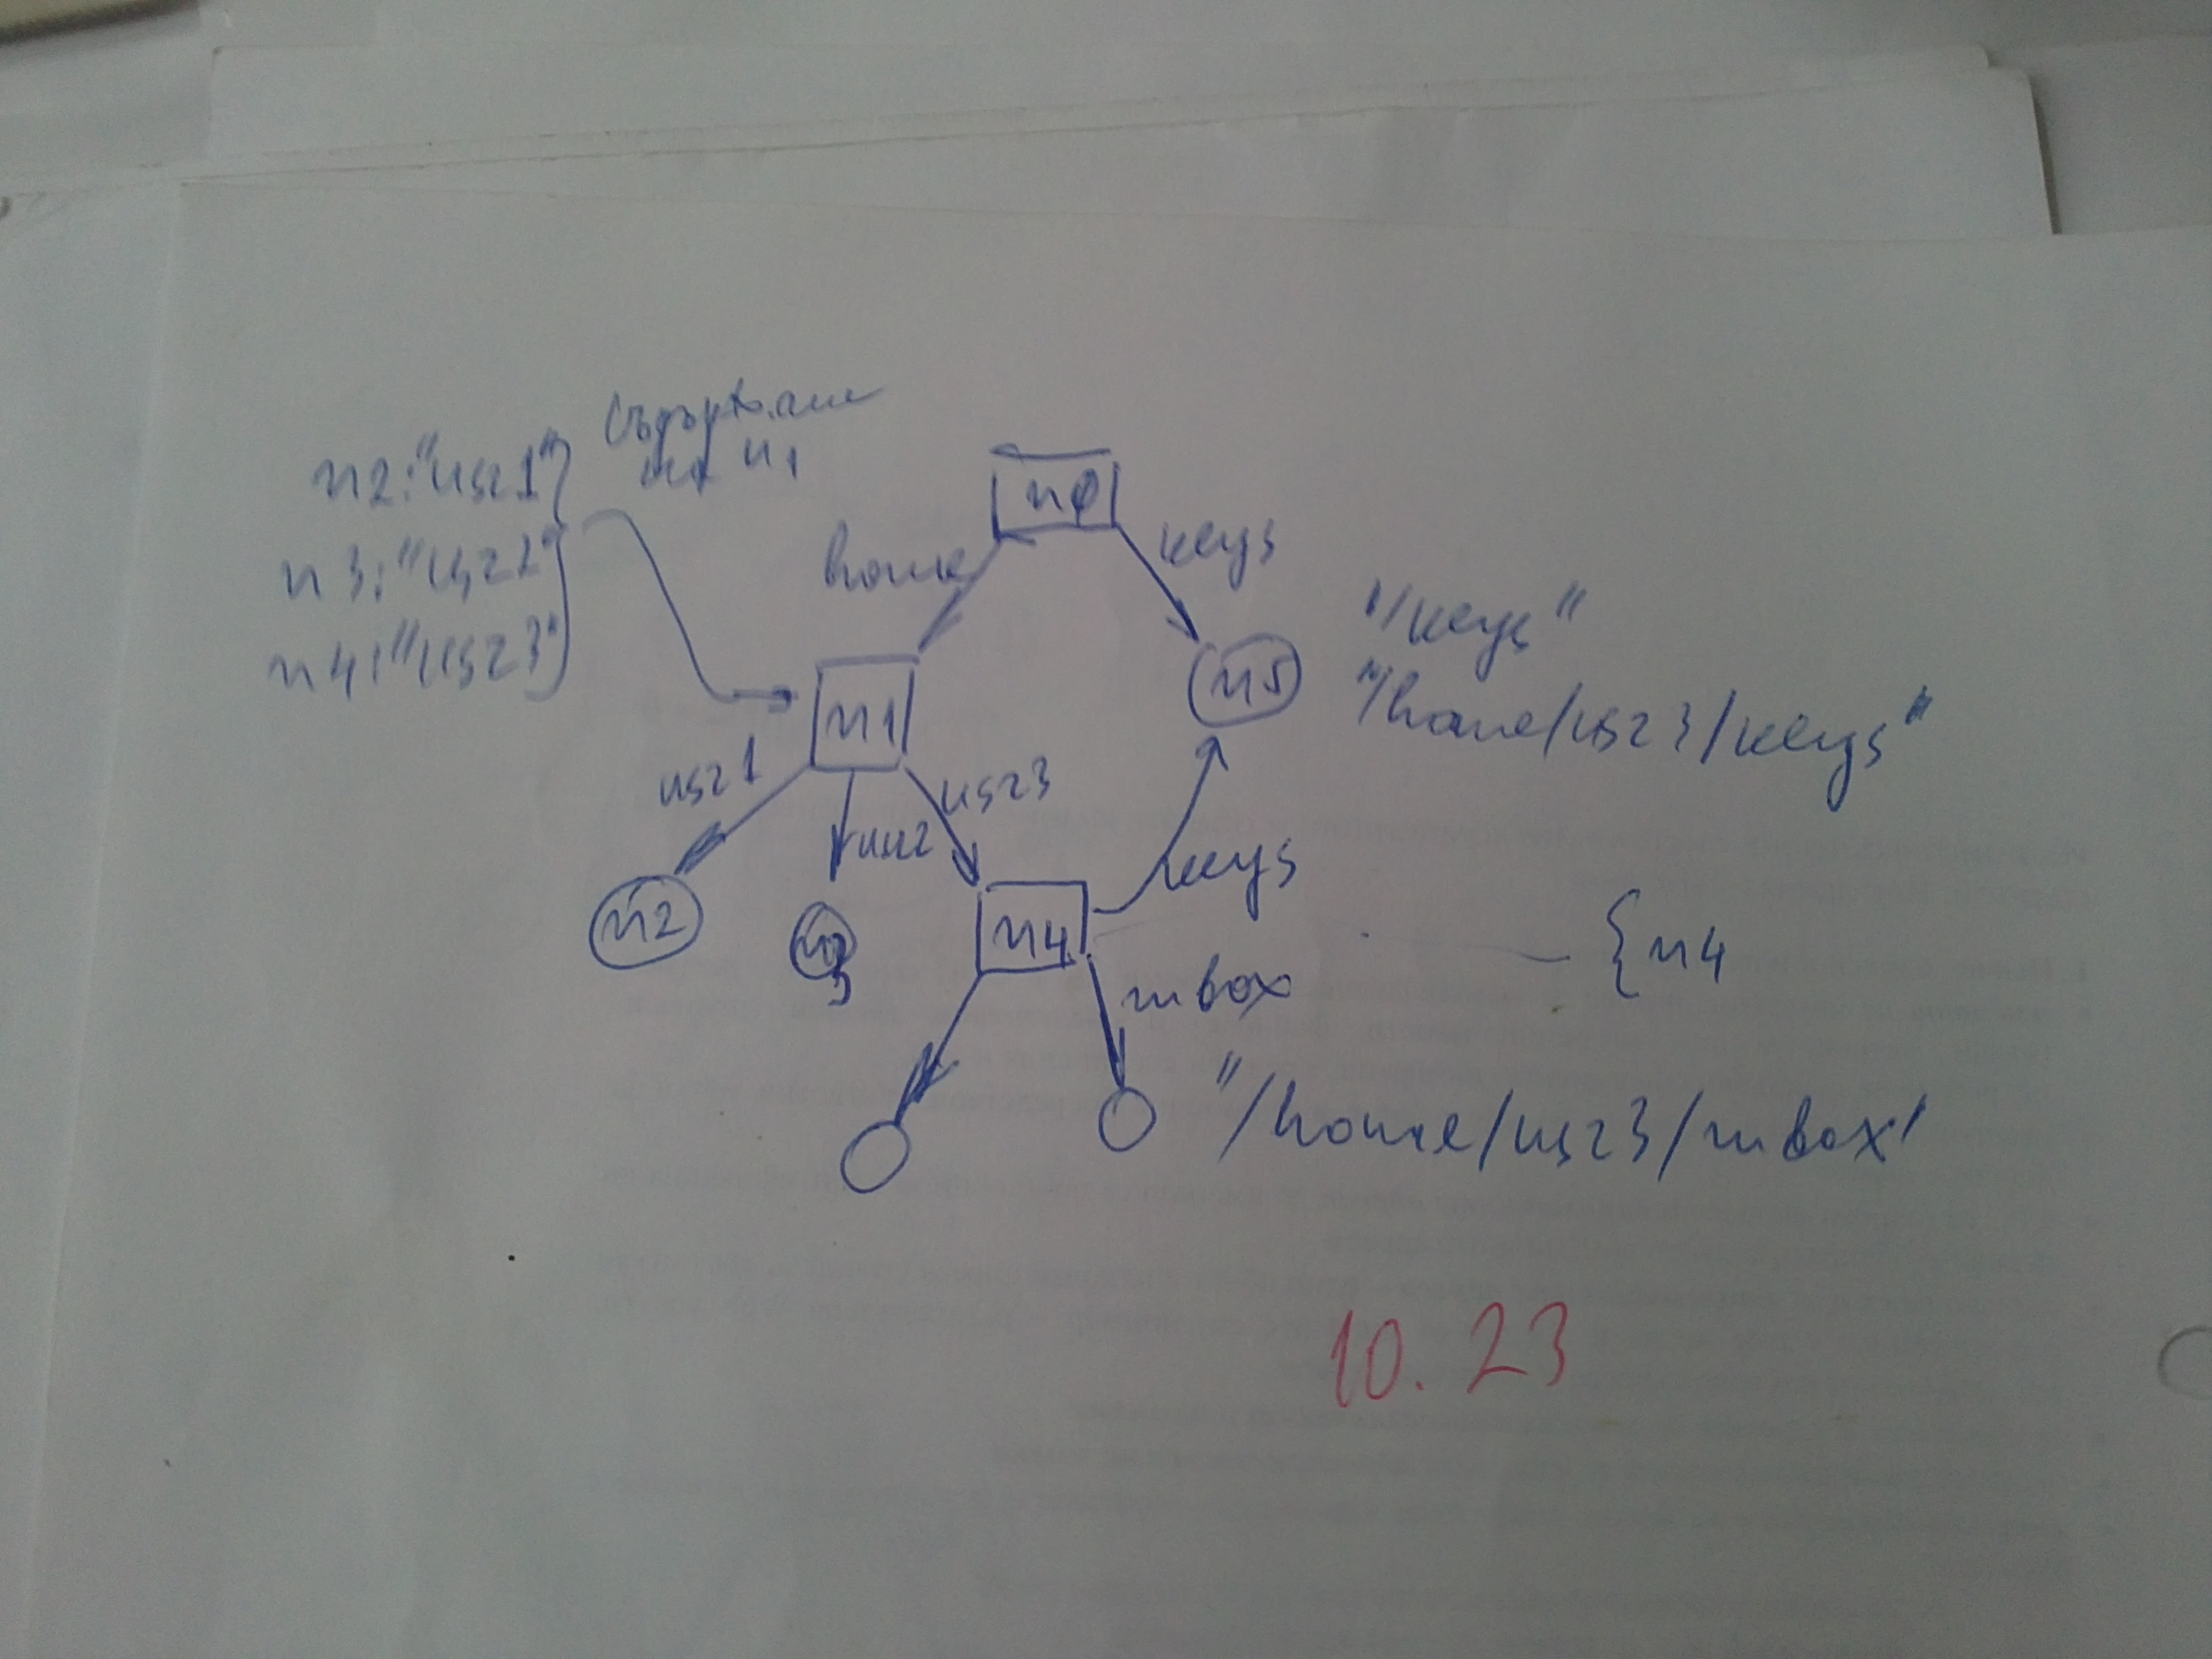 съдържание
на n1
n2:"usr1"
n3:"usr2"
n4:"usr3"
n0
home
keys
n5
"/keys"
"/home/usr3/keys"
n1
usr1
usr2
usr3
n2
n3
n4
keys
{n4
mbox
"/home/usr3/mbox"
10.23